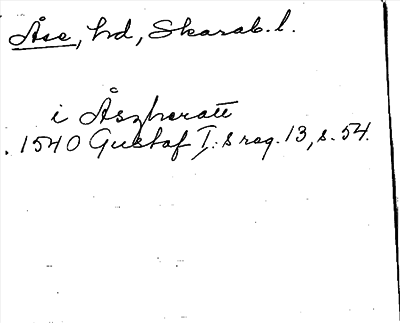 Åse, hd, Skarab. l.
i Åszheratt
1540 Gustaf I:s reg. 13, s. 54.